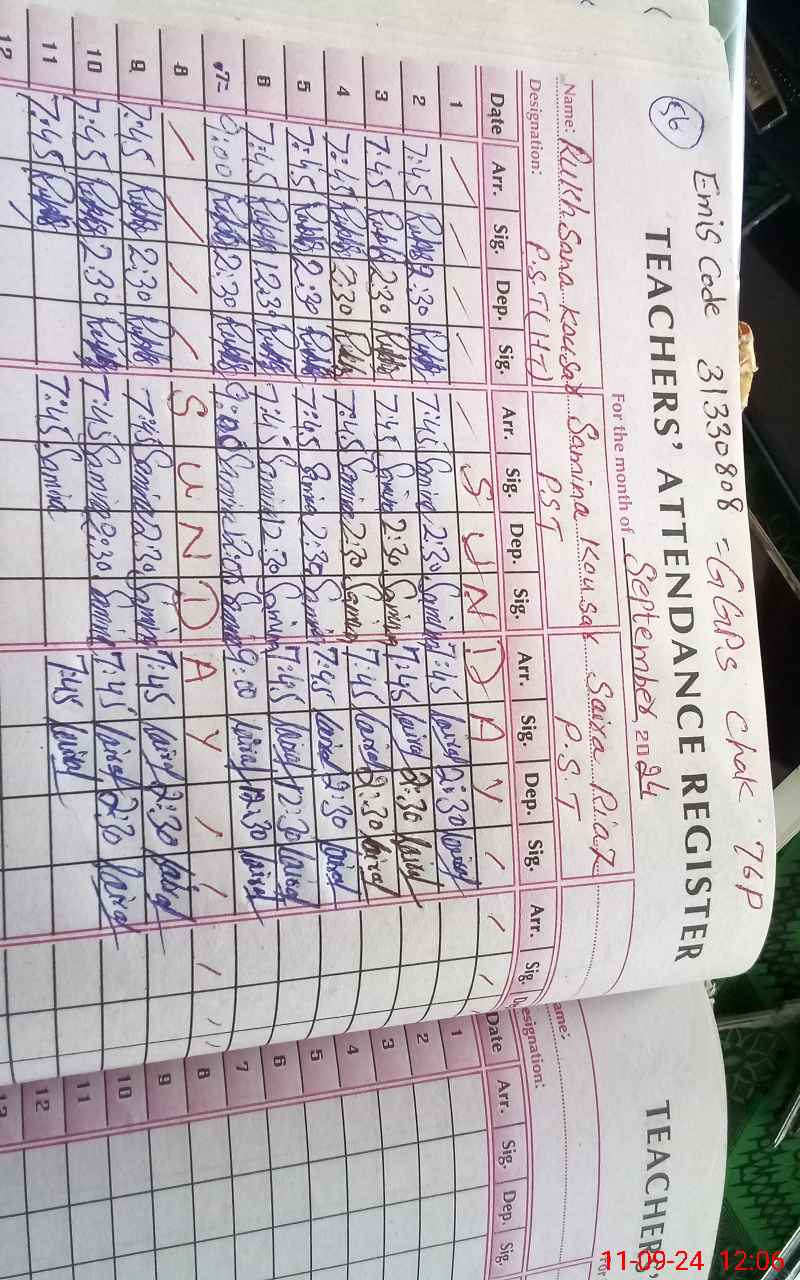 56
Emis Code 31330808 = GGPS Chak 76P
TEACHERS' ATTENDANCE REGISTER
For the month of September 2024
Name: Rukhsana Kousar Samina Kousar Saira Riaz
Designation: P.S.T(HT) P.S.T P.S.T
Date Arr. Sig. Dep. Sig. Arr. Sig. Dep. Sig. Arr. Sig. Dep. Sig. Arr. Sig.
1 S U N D A Y
2 7:45 2:30 7:45 Samina 2:30 Samina 7:45 2:30
3 7:45 2:30 7:45 Samina 2:30 Samina 7:45 2:30
4 7:45 2:30 7:45 Samina 2:30 Samina 7:45 2:30
5 7:45 2:30 7:45 Samina 2:30 Samina 7:45 2:30
6 7:45 12:30 7:45 Samina 12:30 Samina 7:45 12:30
7 9:00 2:30 9:00 Samina Samina 9:00 12:30
8 S U N D A Y
9 7:45 2:30 7:45 Samina 2:30 Samina 7:45 2:30
10 7:45 2:30 7:45 Samina 2:30 Samina 7:45 2:30
11 7:45 7:45 Samina 7:45
12
TEACHER
ame:
esignation:
Date Arr. Sig. Dep. Sig.
1
2
3
4
5
6
7
8
9
10
11
12
11-09-24 12:06